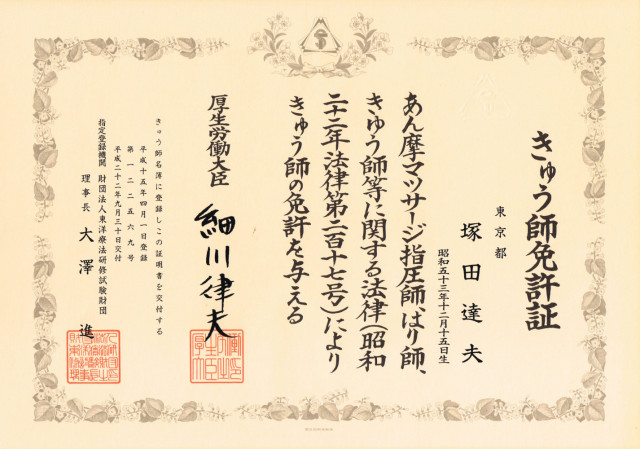 きゅう師免許証
東京都
塚田達夫
昭和五十三年十二月十五日生
あん摩マツサージ指圧師、はり師、
きゆう師等に関する法律(昭和
二十二年法律第二百十七号)により
きゅう師の免許を与える
厚生労働大臣
細川律夫
きゅう師名簿に登録しこの証明書を交付する
平成十五年四月一日登録
第一二二五六九号
平成二十二年九月三十日交付
指定登録機関 財団法人東洋療法研修試験財団
理事長 大澤 進